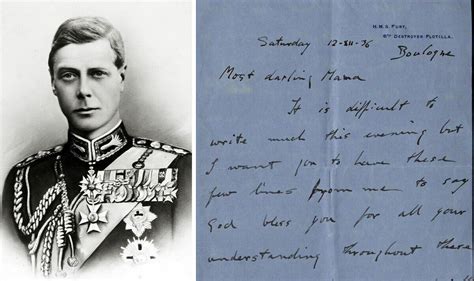 H.M.S. FURY,
6TH DESTROYER FLOTILLA.
Saturday 12-XII-36
Boulogne
Most darling Mama
It is difficult to
write much this evening but
I want you to have these
few lines from me to say
God bless you for all your
understanding throughout these